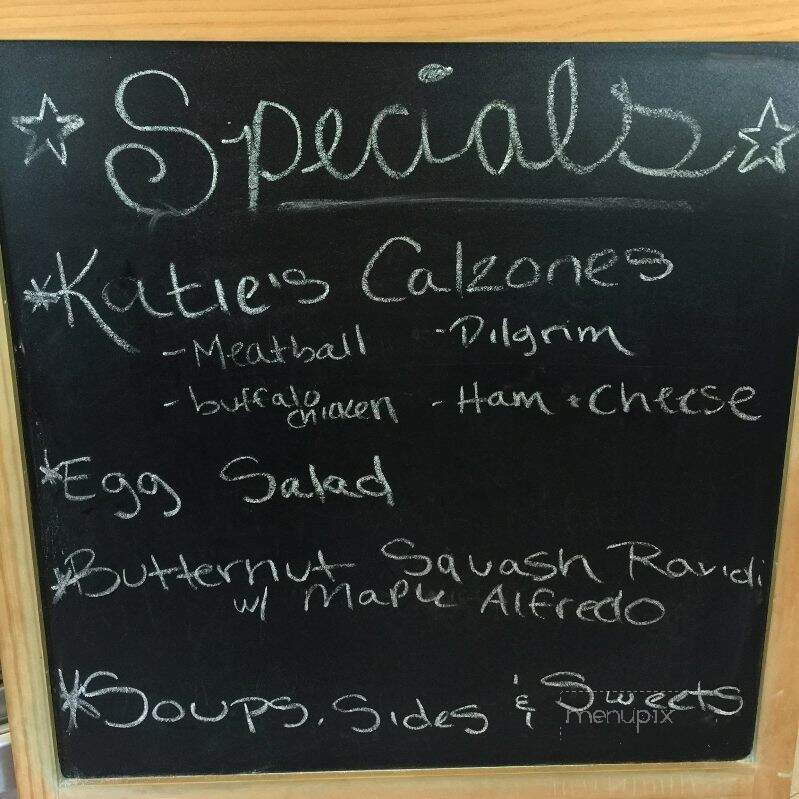 Specials
*Katie's Calzones
-Meatball -Pilgrim
-buffalo chicken -Ham + Cheese
*Egg Salad
*Butternut Squash Ravioli
w/ Maple Alfredo
*Soups, Sides & Sweets
menupix